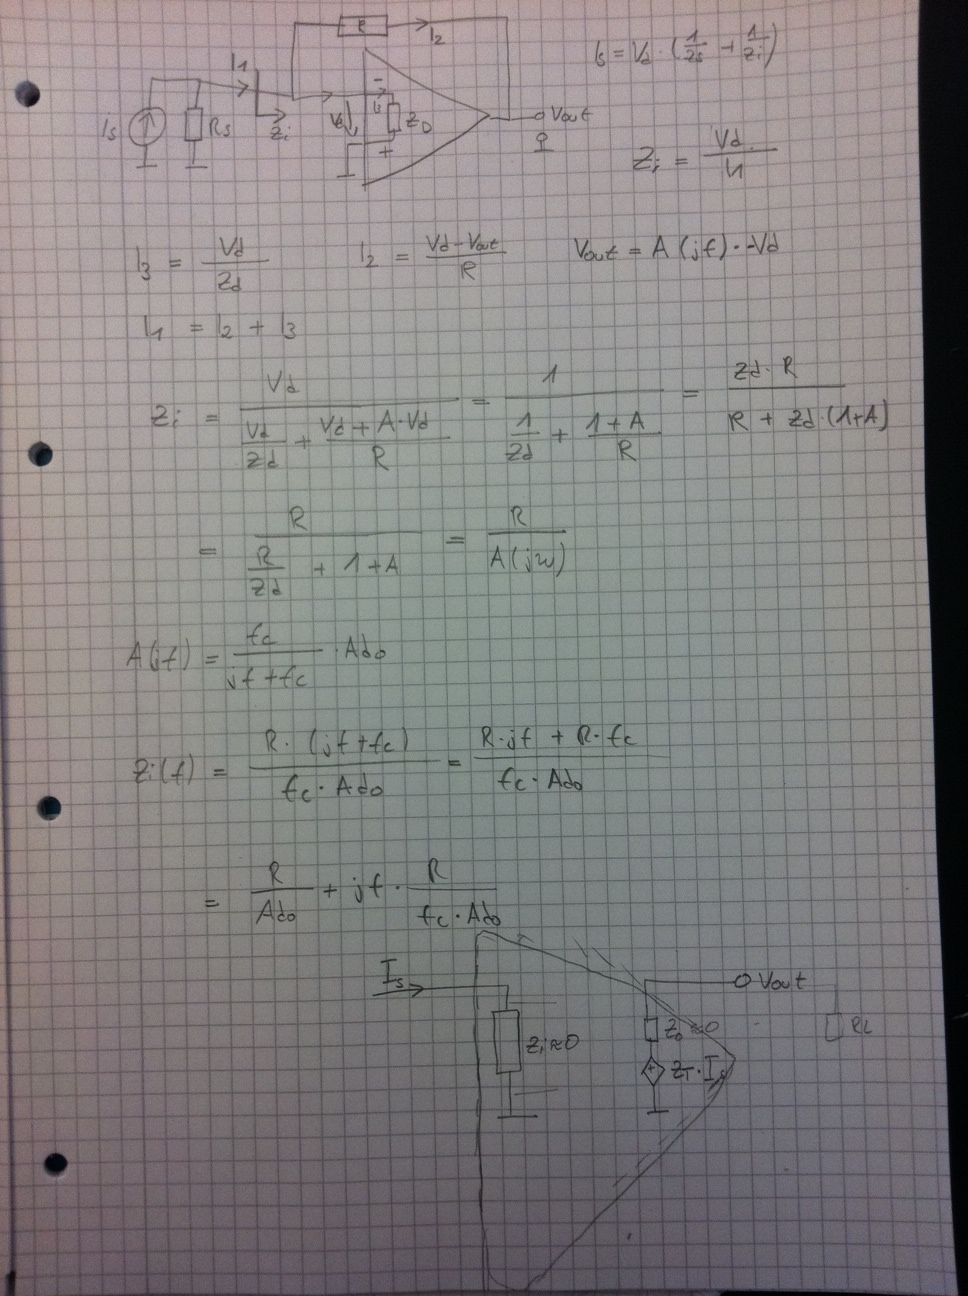 R
I2
Is = Vd · (1/Zs + 1/Zi)
I1
Is
Rs
Zi
Vd
I3
ZD
-
+
Vout
Zi = Vd / I1
I3 = Vd / Zd
I2 = Vd - Vout / R
Vout = A(jf) · -Vd
I1 = I2 + I3
Zi = Vd / (Vd/Zd + (Vd + A·Vd)/R) = 1 / (1/Zd + (1+A)/R) = Zd · R / (R + Zd·(1+A))
= R / (R/Zd + 1+A) = R / A(jω)
A(jf) = fc / (jf+fc) · Ado
Zi(f) = R · (jf+fc) / (fc · Ado) = (R·jf + R·fc) / (fc · Ado)
= R/Ado + jf · R / (fc · Ado)
Is
Vout
Zi≈0
Zo≈0
RL
+
ZT · Is